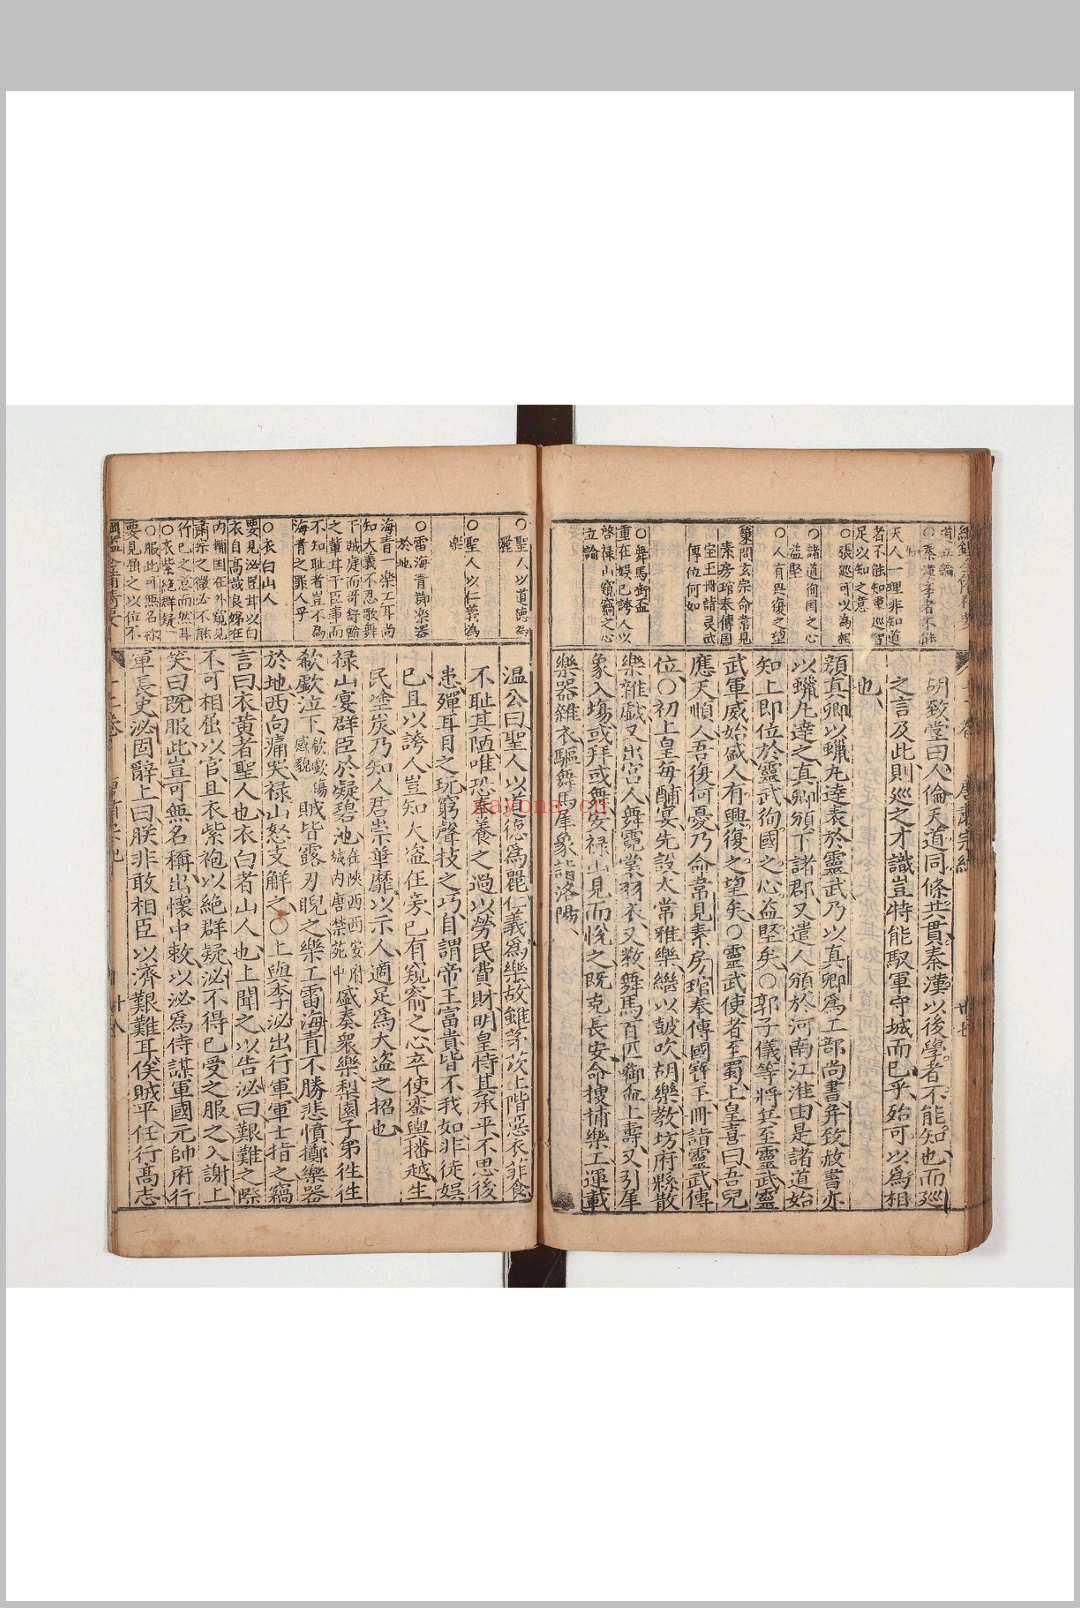 胡致堂曰人倫天道同條共貫秦漢以後學者不能知也而廵
之言及此則廵之才識豈特能馭軍守城而已乎殆可以爲相
也
顔真卿以蠟丸逹表於靈武乃以真卿爲工部尚書并致赦書亦
以蠟丸逹之真卿頒下諸郡又遣人頒於河南江淮由是諸道始
知上即位於靈武徇國之心益堅矣〇郭子儀等將兵至靈武靈
武軍威始盛人有興復之望矣〇靈武使者至蜀上皇喜曰吾兒
應天順人吾復何憂乃命韋見素房琯奉傳國寶玉冊詣靈武傳
位〇初上皇每酺宴先設太常雅樂繼以鼓吹胡樂教坊府縣散
樂雜戯又出宮人舞霓裳羽衣又教舞馬百匹啣盃上壽又引犀
象入塲或拜或舞安禄山見而悅之既克長安命搜捕樂工運載
樂器雜衣驅舞馬犀象詣洛陽
天人一理非知道
者不能知重廵智
足以知之意
〇張廵可以為相
〇諸道徇国之心
益堅
〇人有興復之望
策問玄宗命韋見
素房琯奉傳国
宝玉冊詣灵武
傳位何如
〇舞馬啣盃
重在娱已誇人以
啓禄山窺窬之心
立論
温公曰聖人以道德爲麗仁義爲樂故雖茅茨土階惡衣菲食
不耻其陋唯恐奉養之過以勞民費財明皇恃其承平不思後
患殫耳目之玩窮聲技之巧自謂帝王富貴皆不我如非徒娱
已且以誇人豈知大盗在旁已有窺窬之心卒使鑾輿播越生
民塗炭乃知人君崇華靡以示人適足爲大盗之招也
禄山宴群臣於凝碧池在陜西西安府城內唐禁苑中盛奏衆樂梨園子弟往往
欷歔泣下欷歔傷感貌賊皆露刃睨之樂工雷海青不勝悲憤擲樂器
於地西向痛哭禄山怒支解之〇上與李泌出行軍軍士指之竊
言曰衣黄者聖人也衣白者山人也上聞之以告泌曰艱難之際
不可相屈以官且衣紫袍以絶群疑泌不得已受之服之入謝上
笑曰既服此豈可無名稱出懷中敕以泌爲侍謀軍國元帥府行
軍長史泌固辭上曰朕非敢相臣以濟艱難耳俟賊平任行高志
〇聖人以道德為
麗
〇聖人以仁義為
樂
〇雷海青擲樂器
於地
海青一樂工耳尚
知大義不忍歌舞
不知耻者豈不為
海青之罪人乎
〇衣白山人
〇衣紫絶群疑
〇服此可無名称
nayona.cn